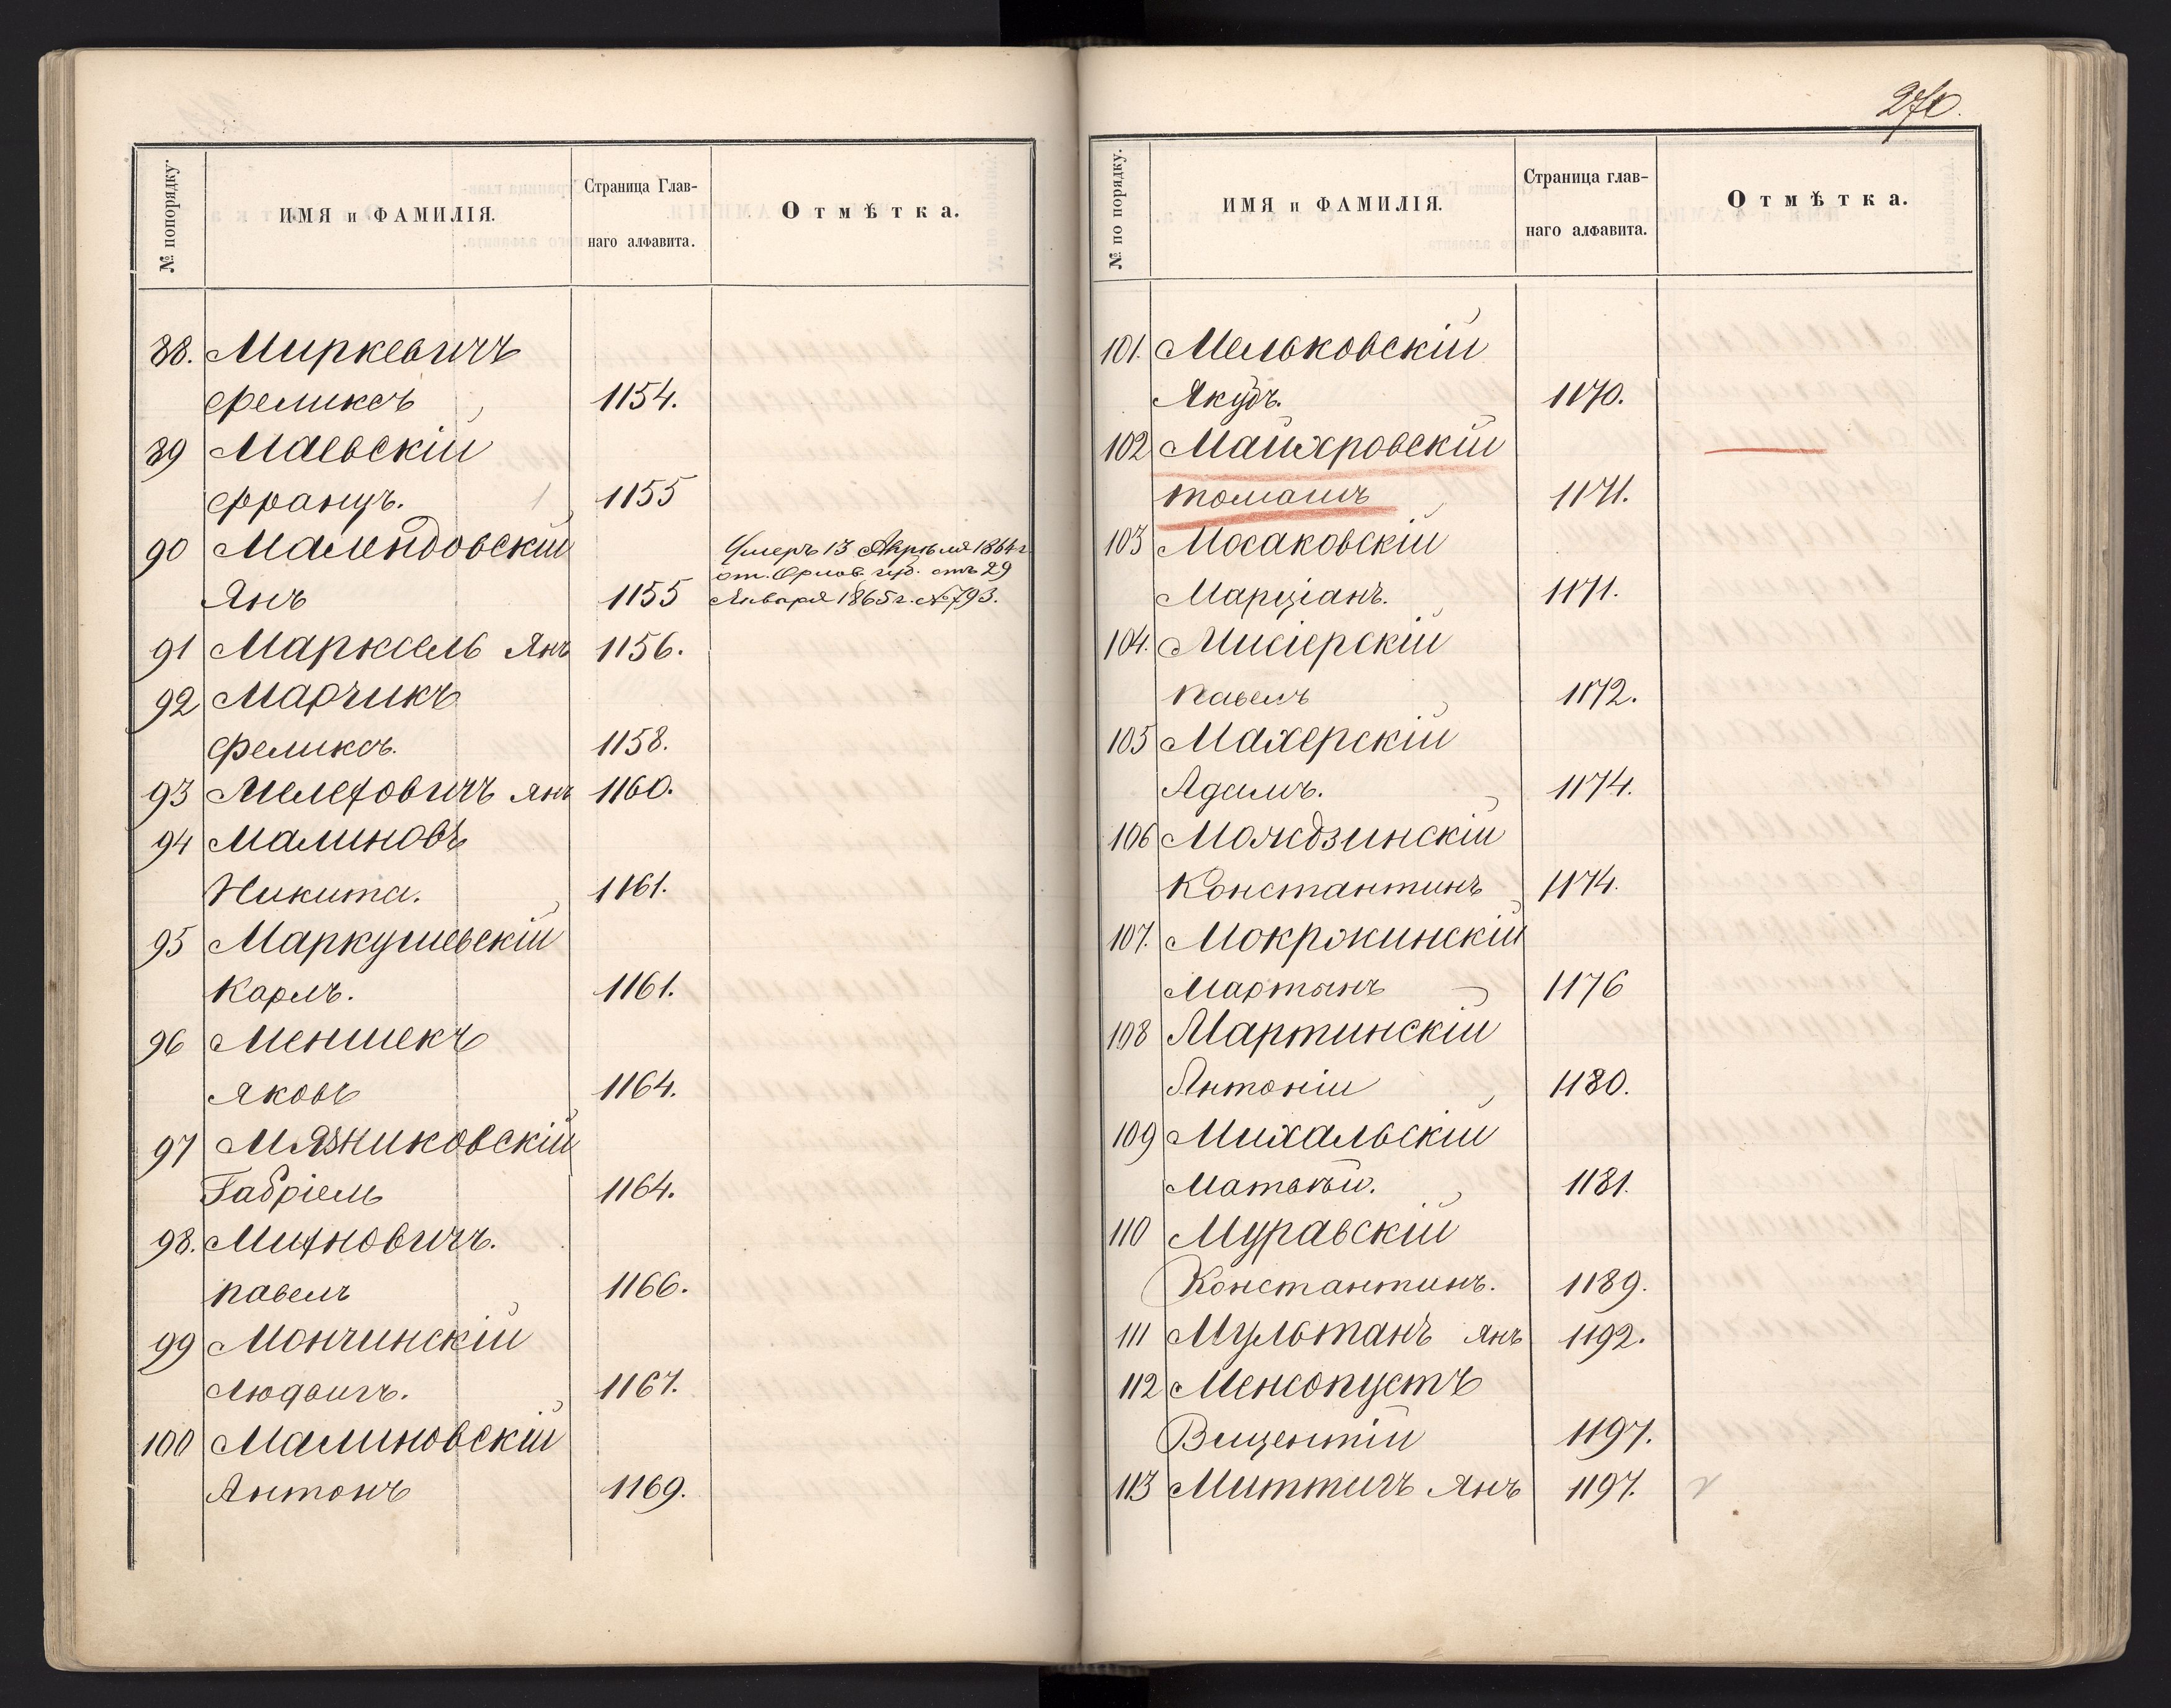 № попорядку.
ИМЯ и ФАМИЛІЯ.
Страница Глав-
наго алфавита.
Отмѣтка.
88. Миркевичъ
Феликсъ 1154.
89 Маевскій
Францъ. 1155
90 Малендовскій
Янъ 1155
Умеръ 13 Апрѣля 1864 г.
от. Орлов. губ. отъ 29
Января 1865 г. № 793.
91 Марксель Янъ 1156.
92 Марчикъ
Феликсъ. 1158.
93 Мелеховичъ Янъ 1160.
94 Малиновъ
Никита. 1161.
95 Маркушевскій
Карлъ. 1161.
96 Меншекъ
Яковъ 1164.
97 Мязниковскій
Габріель 1164.
98. Михновичъ.
Павелъ 1166.
99 Мончинскій
Людвигъ. 1167.
100 Малиновскій
Антонъ 1169.
270.
№ по порядку.
ИМЯ и ФАМИЛІЯ.
Страница глав-
наго алфавита.
Отмѣтка.
101. Мельковскій
Якубъ. 1170.
102 Майхровскій
Томашъ 1171.
103 Мосаковскій
Марціанъ. 1171.
104. Мисіерскій
Павелъ 1172.
105 Махерскій
Адамъ. 1174.
106 Мождзинскій
Константинъ 1174.
107. Мокржинскій
Мартынъ 1176
108 Мартинскій
Антоній 1180.
109 Михальскій
Матвѣй. 1181.
110 Муравскій
Константинъ. 1189.
111 Мультанъ Янъ 1192.
112 Менсопустъ
Вицентій 1197.
113 Миттигъ Янъ 1197.